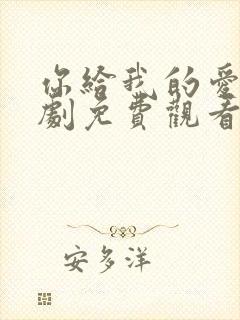 你給我的愛
劇免費觀看
安多洋